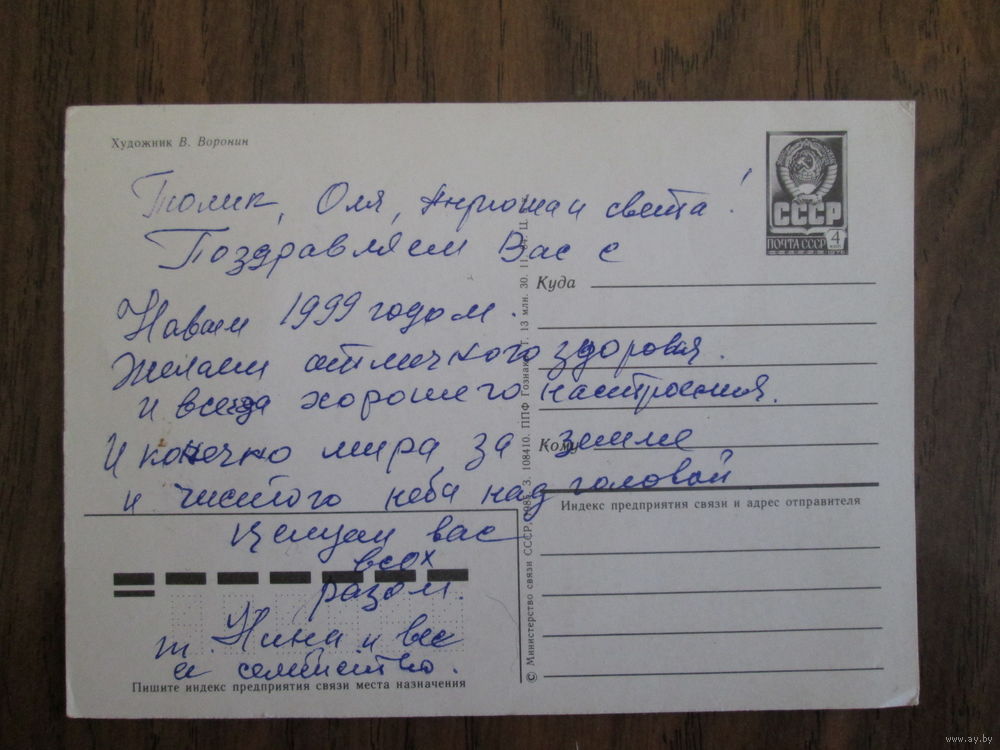 Художник В. Воронин
СССР
ПОЧТА СССР 4
Толик, Оля, Анрюшаи света!
Поздравляем Вас с
Новым 1999 годом.
Желаем отличного здоровья.
и всегда хорошего настроения.
И конечно мира за земле
и чистого неба над головой
Целуем вас
всех
разом.
т. Нина и все
е семейство.
Куда
Кому
Индекс предприятия связи и адрес отправителя
Пишите индекс предприятия связи места назначения
© Министерство связи СССР. З. 108410. ППФ Гознака. Т. 13 млн. 30. Ц.
www.ay.by